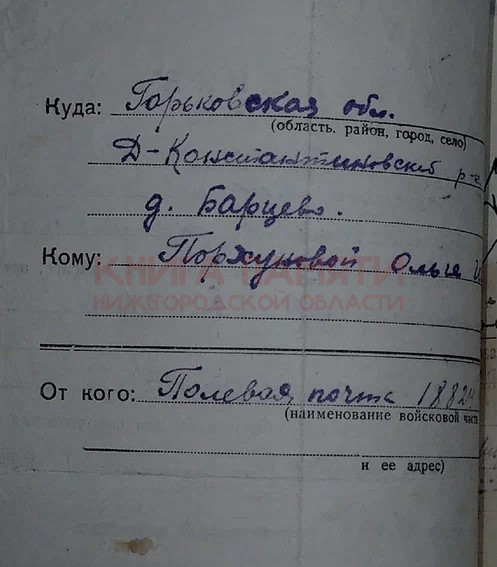 Куда: Горьковская обл.
(область, район, город, село)
Д-Константиновский р-н
д. Барцево.
Кому: Порхуновой Ольге И
КНИГА ПАМЯТИ
НИЖЕГОРОДСКОЙ ОБЛАСТИ
От кого: Полевая почта
(наименование войсковой части
и ее адрес)